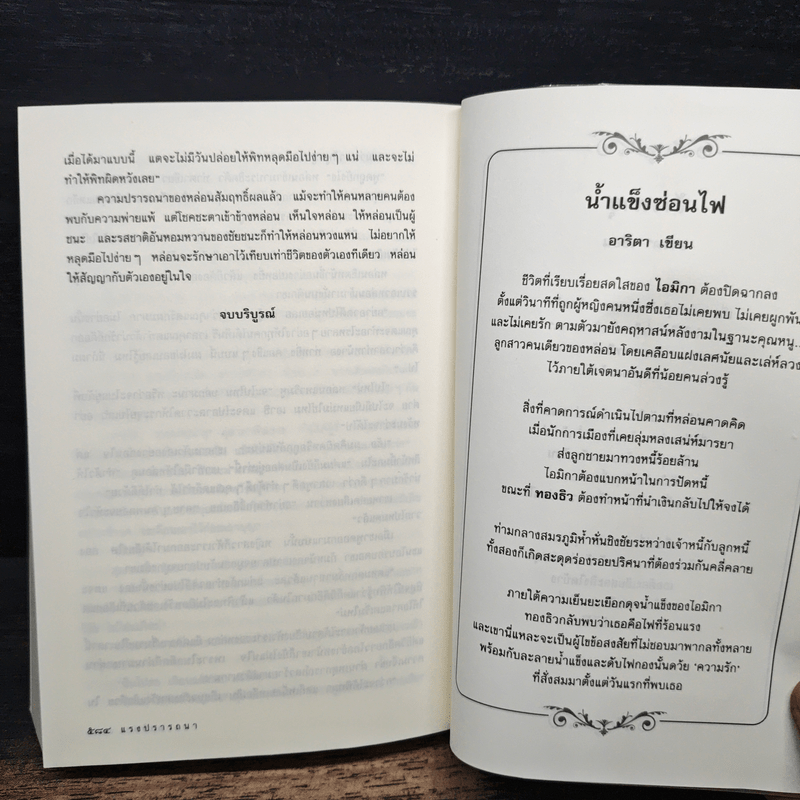 เมื่อได้มาแบบนี้ แต่จะไม่มีวันปล่อยให้พิทหลุดมือไปง่ายๆ แน่ และจะไม่
ทำให้พิทผิดหวังเลย”
ความปรารถนาของหล่อนสัมฤทธิ์ผลแล้ว แม้จะทำให้คนหลายคนต้อง
พบกับความพ่ายแพ้ แต่โชคชะตาเข้าข้างหล่อน เห็นใจหล่อน ให้หล่อนเป็นผู้
ชนะ และรสชาติอันหอมหวานของชัยชนะก็ทำให้หล่อนหวงแหน ไม่อยากให้
หลุดมือไปง่ายๆ หล่อนจะรักษาเอาไว้เทียบเท่าชีวิตของตัวเองทีเดียว หล่อน
ให้สัญญากับตัวเองอยู่ในใจ
จบบริบูรณ์
๕๘๔ แรงปรารถนา
น้ำแข็งซ่อนไฟ
อาริตา เขียน
ชีวิตที่เรียบเรื่อยสดใสของ ไอมิกา ต้องปิดฉากลง
ตั้งแต่วินาทีที่ถูกผู้หญิงคนหนึ่งซึ่งเธอไม่เคยพบ ไม่เคยผูกพัน
และไม่เคยรัก ตามตัวมายังคฤหาสน์หลังงามในฐานะคุณหนู...
ลูกสาวคนเดียวของหล่อน โดยเคลือบแฝงเลศนัยและเล่ห์ลวง
ไว้ภายใต้เจตนาอันดีที่น้อยคนล่วงรู้
สิ่งที่คาดการณ์ดำเนินไปตามที่หล่อนคาดคิด
เมื่อนักการเมืองที่เคยลุ่มหลงเสน่ห์มารยา
ส่งลูกชายมาทวงหนี้ร้อยล้าน
ไอมิกาต้องแบกหน้าในการปัดหนี้
ขณะที่ ทองธิว ต้องทำหน้าที่นำเงินกลับไปให้จงได้
ท่ามกลางสมรภูมิห้ำหั่นชิงชัยระหว่างเจ้าหนี้กับลูกหนี้
ทั้งสองก็เกิดสะดุดร่องรอยปริศนาที่ต้องร่วมกันคลี่คลาย
ภายใต้ความเย็นยะเยือกดุจน้ำแข็งของไอมิกา
ทองธิวกลับพบว่าเธอคือไฟที่ร้อนแรง
และเขานี่แหละจะเป็นผู้ไขข้อสงสัยที่ไม่ชอบมาพากลทั้งหลาย
พร้อมกับละลายน้ำแข็งและดับไฟกองนั้นด้วย ‘ความรัก’
ที่สั่งสมมาตั้งแต่วันแรกที่พบเธอ